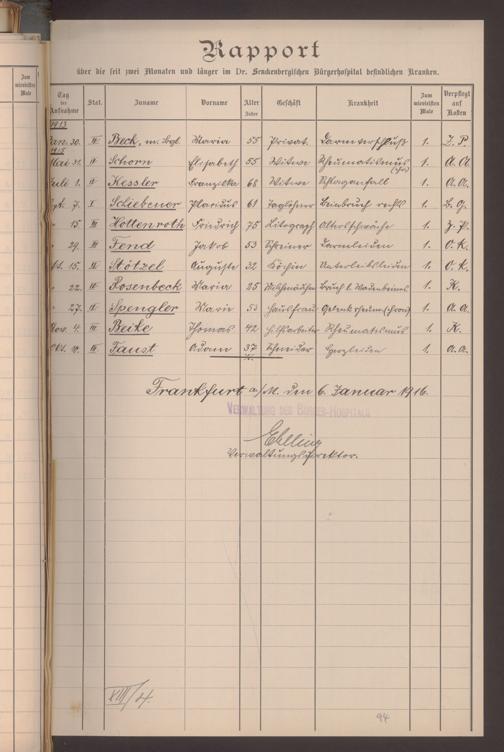 Zum wievielten Male
Rapport
über die seit zwei Monaten und länger im Dr. Senckenbergischen Bürgerhospital befindlichen Kranken.
Tag der Aufnahme Stat. Zuname Vorname Alter Jahre Geschäft Krankheit Zum wievielten Male Verpflegt auf Kosten
1913
Jan. 30. IV Beck, m. Sogl. Maria 55 Privat. Darmverschluß 1. Z. P.
1915
Mai 31. II Schorn Elisabeth 55 Witwe Rheumatismus (chr.) 1. A. A.
Juli 1. II Kessler Franziska 68 Witwe Schlaganfall 1. A. A.
Spt. 7. I Schiebener Plazidus 61 Taglöhner Beinbruch rechts 1. B. G.
" 15 III Hottenroth Friedrich 75 Litograph Altersschwäche 1. Z. P.
" 29. III Fend Jakob 53 Schreiner Darmleiden 1. O. K.
Okt. 15. IV Stötzel Auguste 32 Köchin Unterleibsleiden 1. O. K.
" 22. IV Rosenbeck Maria 25 Bruch d. Wadenbeines 1. K.
" 27. II Spengler Marie 53 Hausfrau Gelenkrheum. (chron.) 1. A. A.
Nov. 4. III Beike Thomas 42 Hilfsarbeiter Rheumatismus 1. K.
Okt. III Faust Adam 37 Schneider Herzleiden 1. A. A.
Frankfurt a/M. den 6. Januar 1916.
VERWALTUNG DES BÜRGER-HOSPITALS
Verwaltungsdirektor.
XIII/4.
94